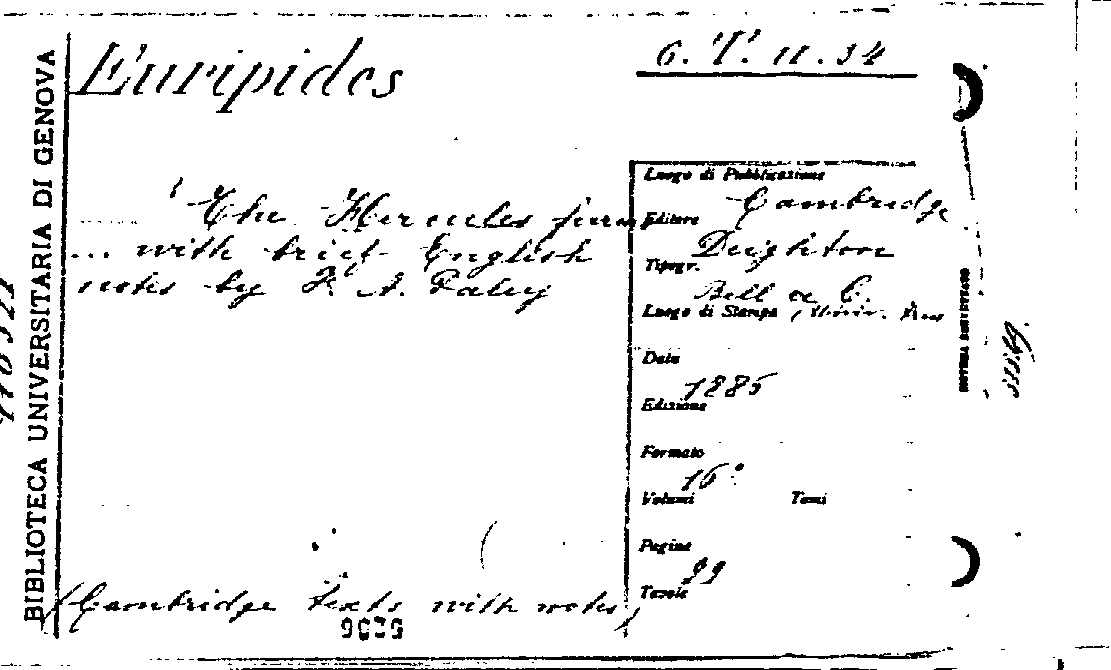 Euripides
6. T. 11. 34
BIBLIOTECA UNIVERSITARIA DI GENOVA
The Hercules furens
... with brief English
notes by F. A. Paley
Luogo di Pubblicazione
Cambridge
Editore
Deighton
Tipogr.
Bell & C.
Luogo di Stampa
(Univ. Press
Data
1885
Edizione
Formato
16°
Volumi Tomi
Pagine
99
Tavole
(Cambridge texts with notes)